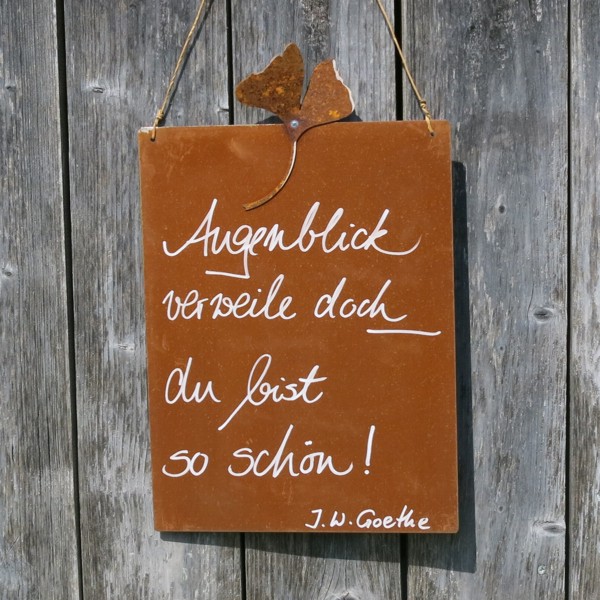 Augenblick
verweile doch
du bist
so schön!
J.W. Goethe